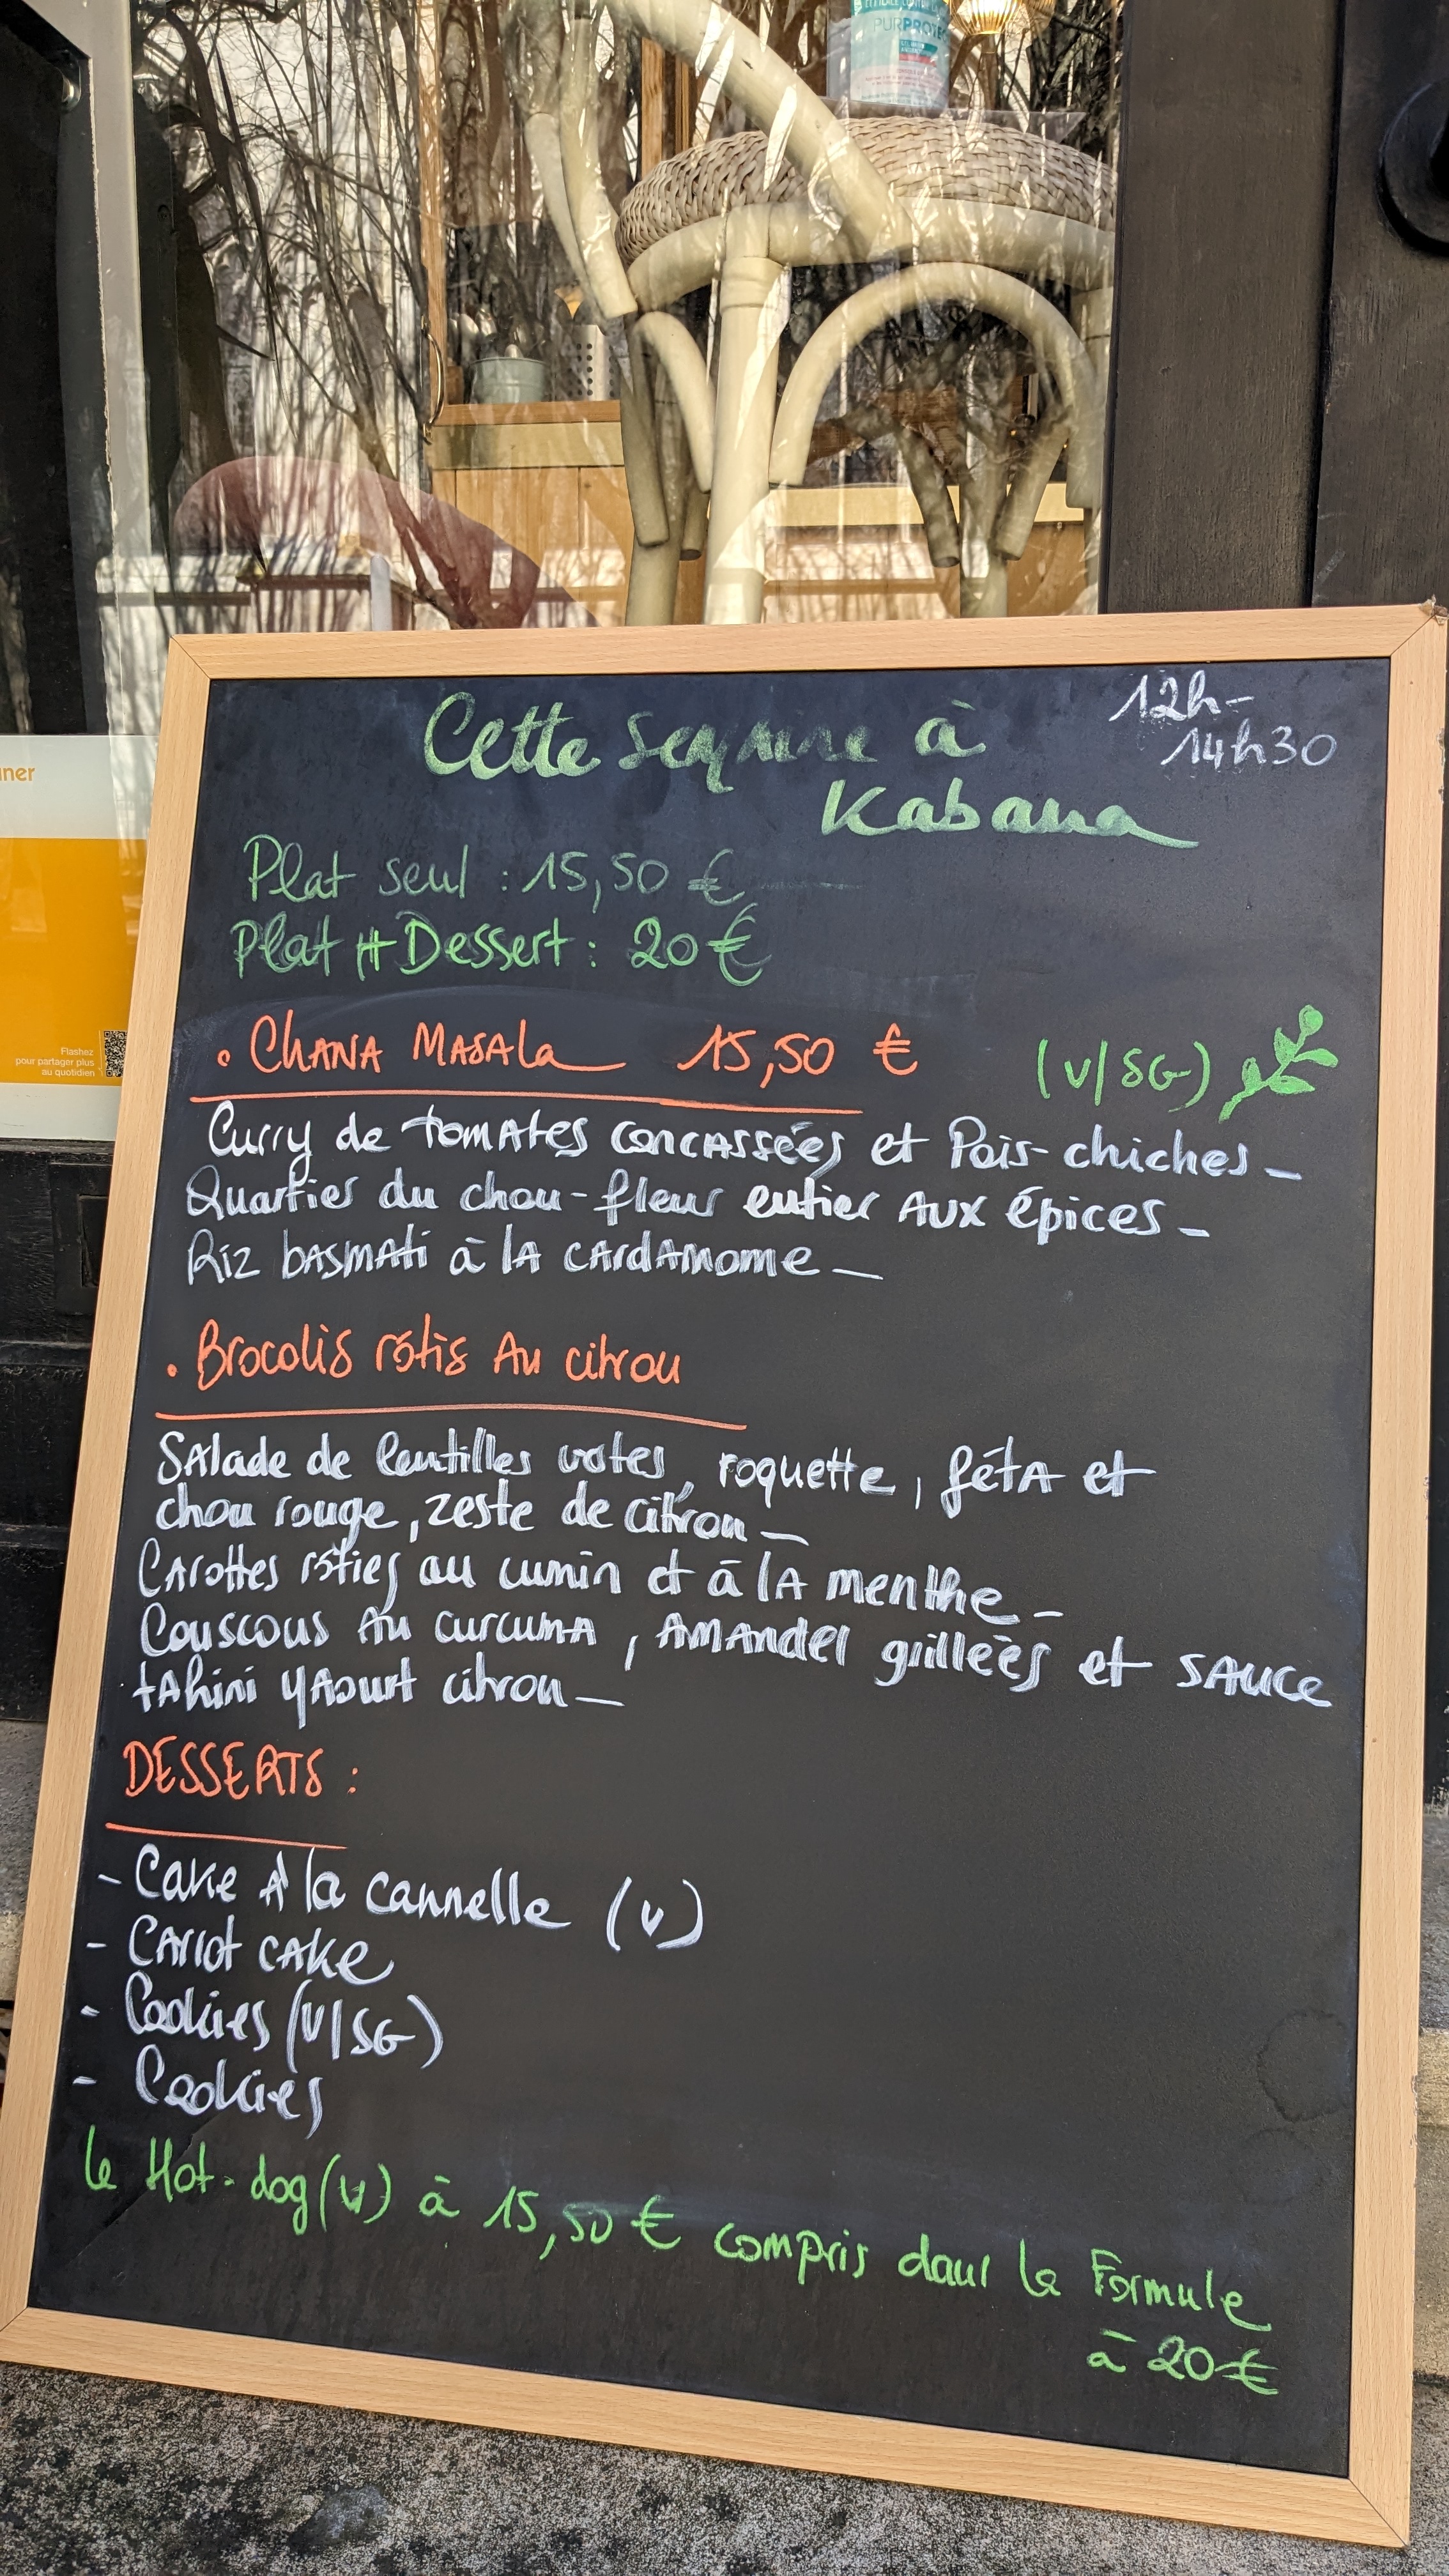 PURPROTE
12h-
14h30
Cette semaine à
Kabana
Plat seul : 15,50 €
Plat + Dessert : 20 €
• CHANA MASALA 15,50 €
(V/SG)
Curry de tomates concassées et Pois-chiches -
Quartier du chou-fleur entier aux épices -
Riz basmati à la cardamome -
• Brocolis rôtis au citron
Salade de lentilles vertes, roquette, féta et
chou rouge, zeste de citron -
Carottes rôties au cumin et à la menthe -
Couscous au curcuma, amandes grillées et sauce
tahini yaourt citron -
DESSERTS :
- Cake à la cannelle (V)
- Carrot cake
- Cookies (V/SG)
- Cookies
le Hot-dog (V) à 15,50 € compris dans la Formule
à 20 €
ner
Flashez
pour partager plus
au quotidien